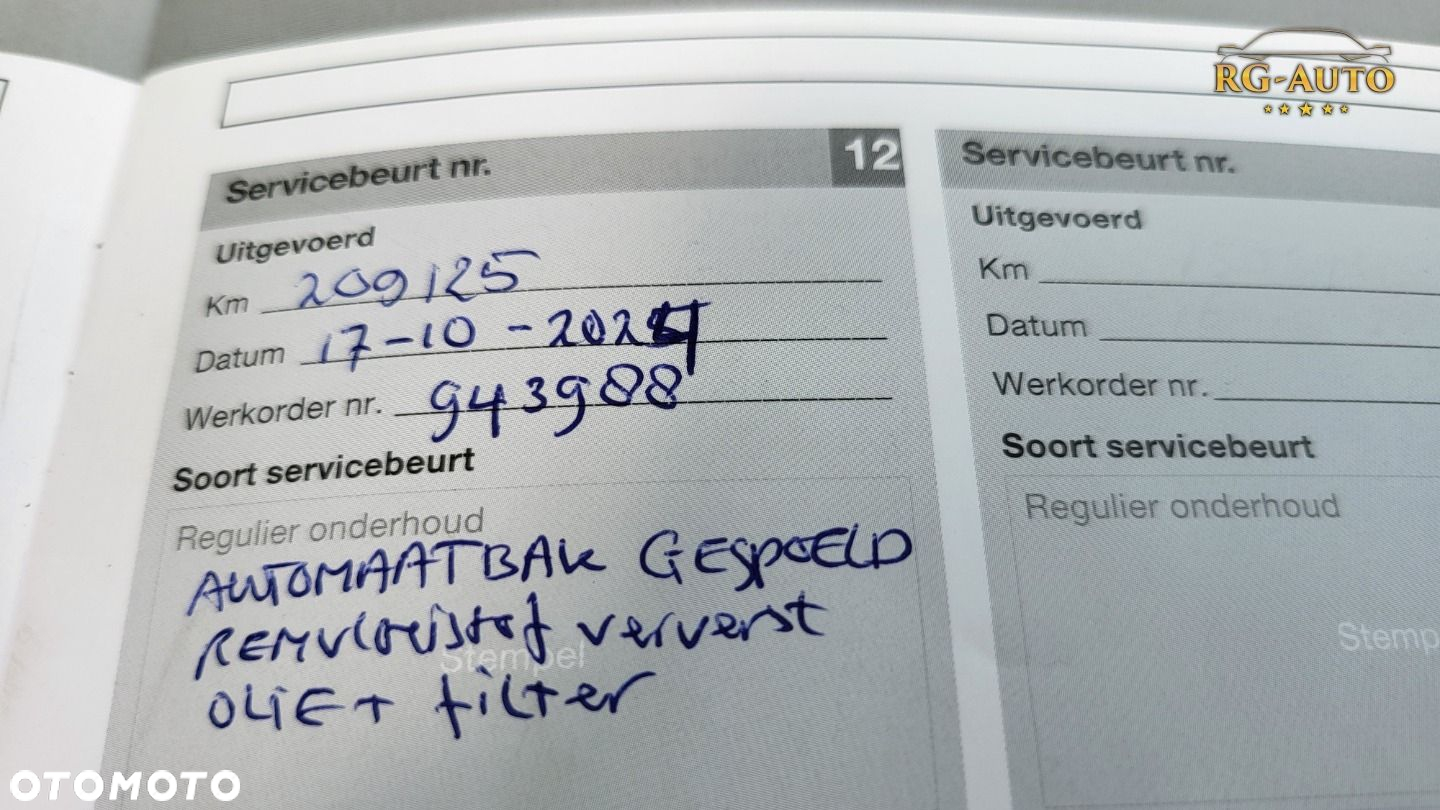 RG-AUTO
Servicebeurt nr. 12
Uitgevoerd
Km 209125
Datum 17-10-2024
Werkorder nr. 943988
Soort servicebeurt
Regulier onderhoud
AUTOMAATBAK GESPOELD
REMVloeistof ververst
Stempel
OLIE + filter
Servicebeurt nr.
Uitgevoerd
Km
Datum
Werkorder nr.
Soort servicebeurt
Regulier onderhoud
Stemp
OTOMOTO